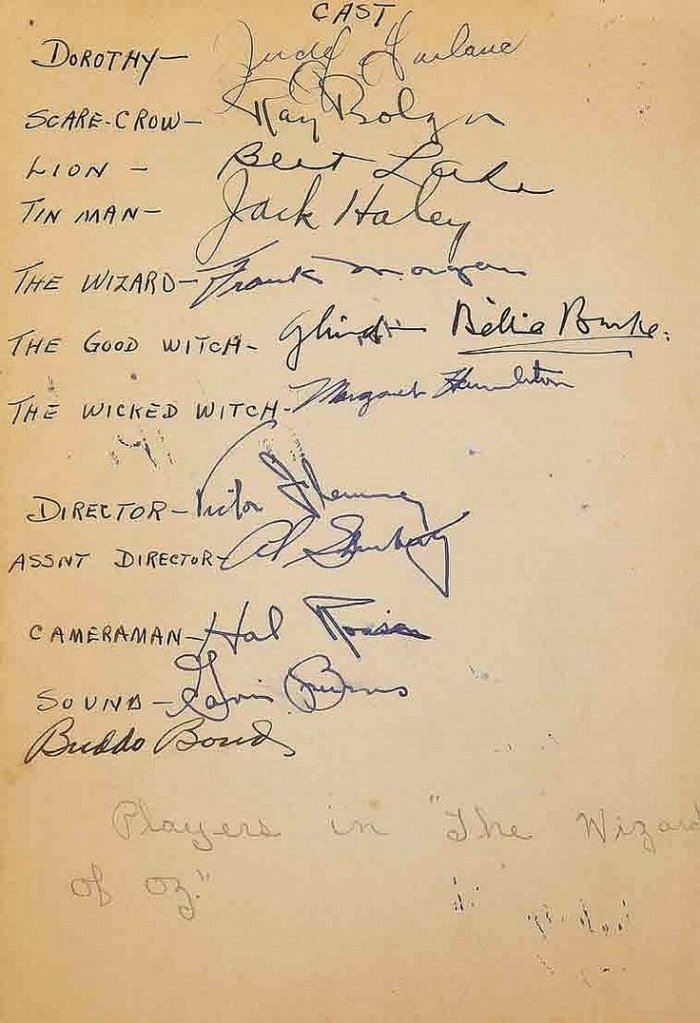 CAST
DOROTHY— Judy Garland
SCARE-CROW— Ray Bolger
LION — Bert Lahr
TIN MAN— Jack Haley
THE WIZARD— Frank Morgan
THE GOOD WITCH— Glinda— Billie Burke.
THE WICKED WITCH- Margaret Hamilton
DIRECTOR— Victor Fleming
ASSNT DIRECTOR- Al
CAMERAMAN— Hal Rosson
SOUND— Burns
Buddo
Players in "The Wizard
of Oz."